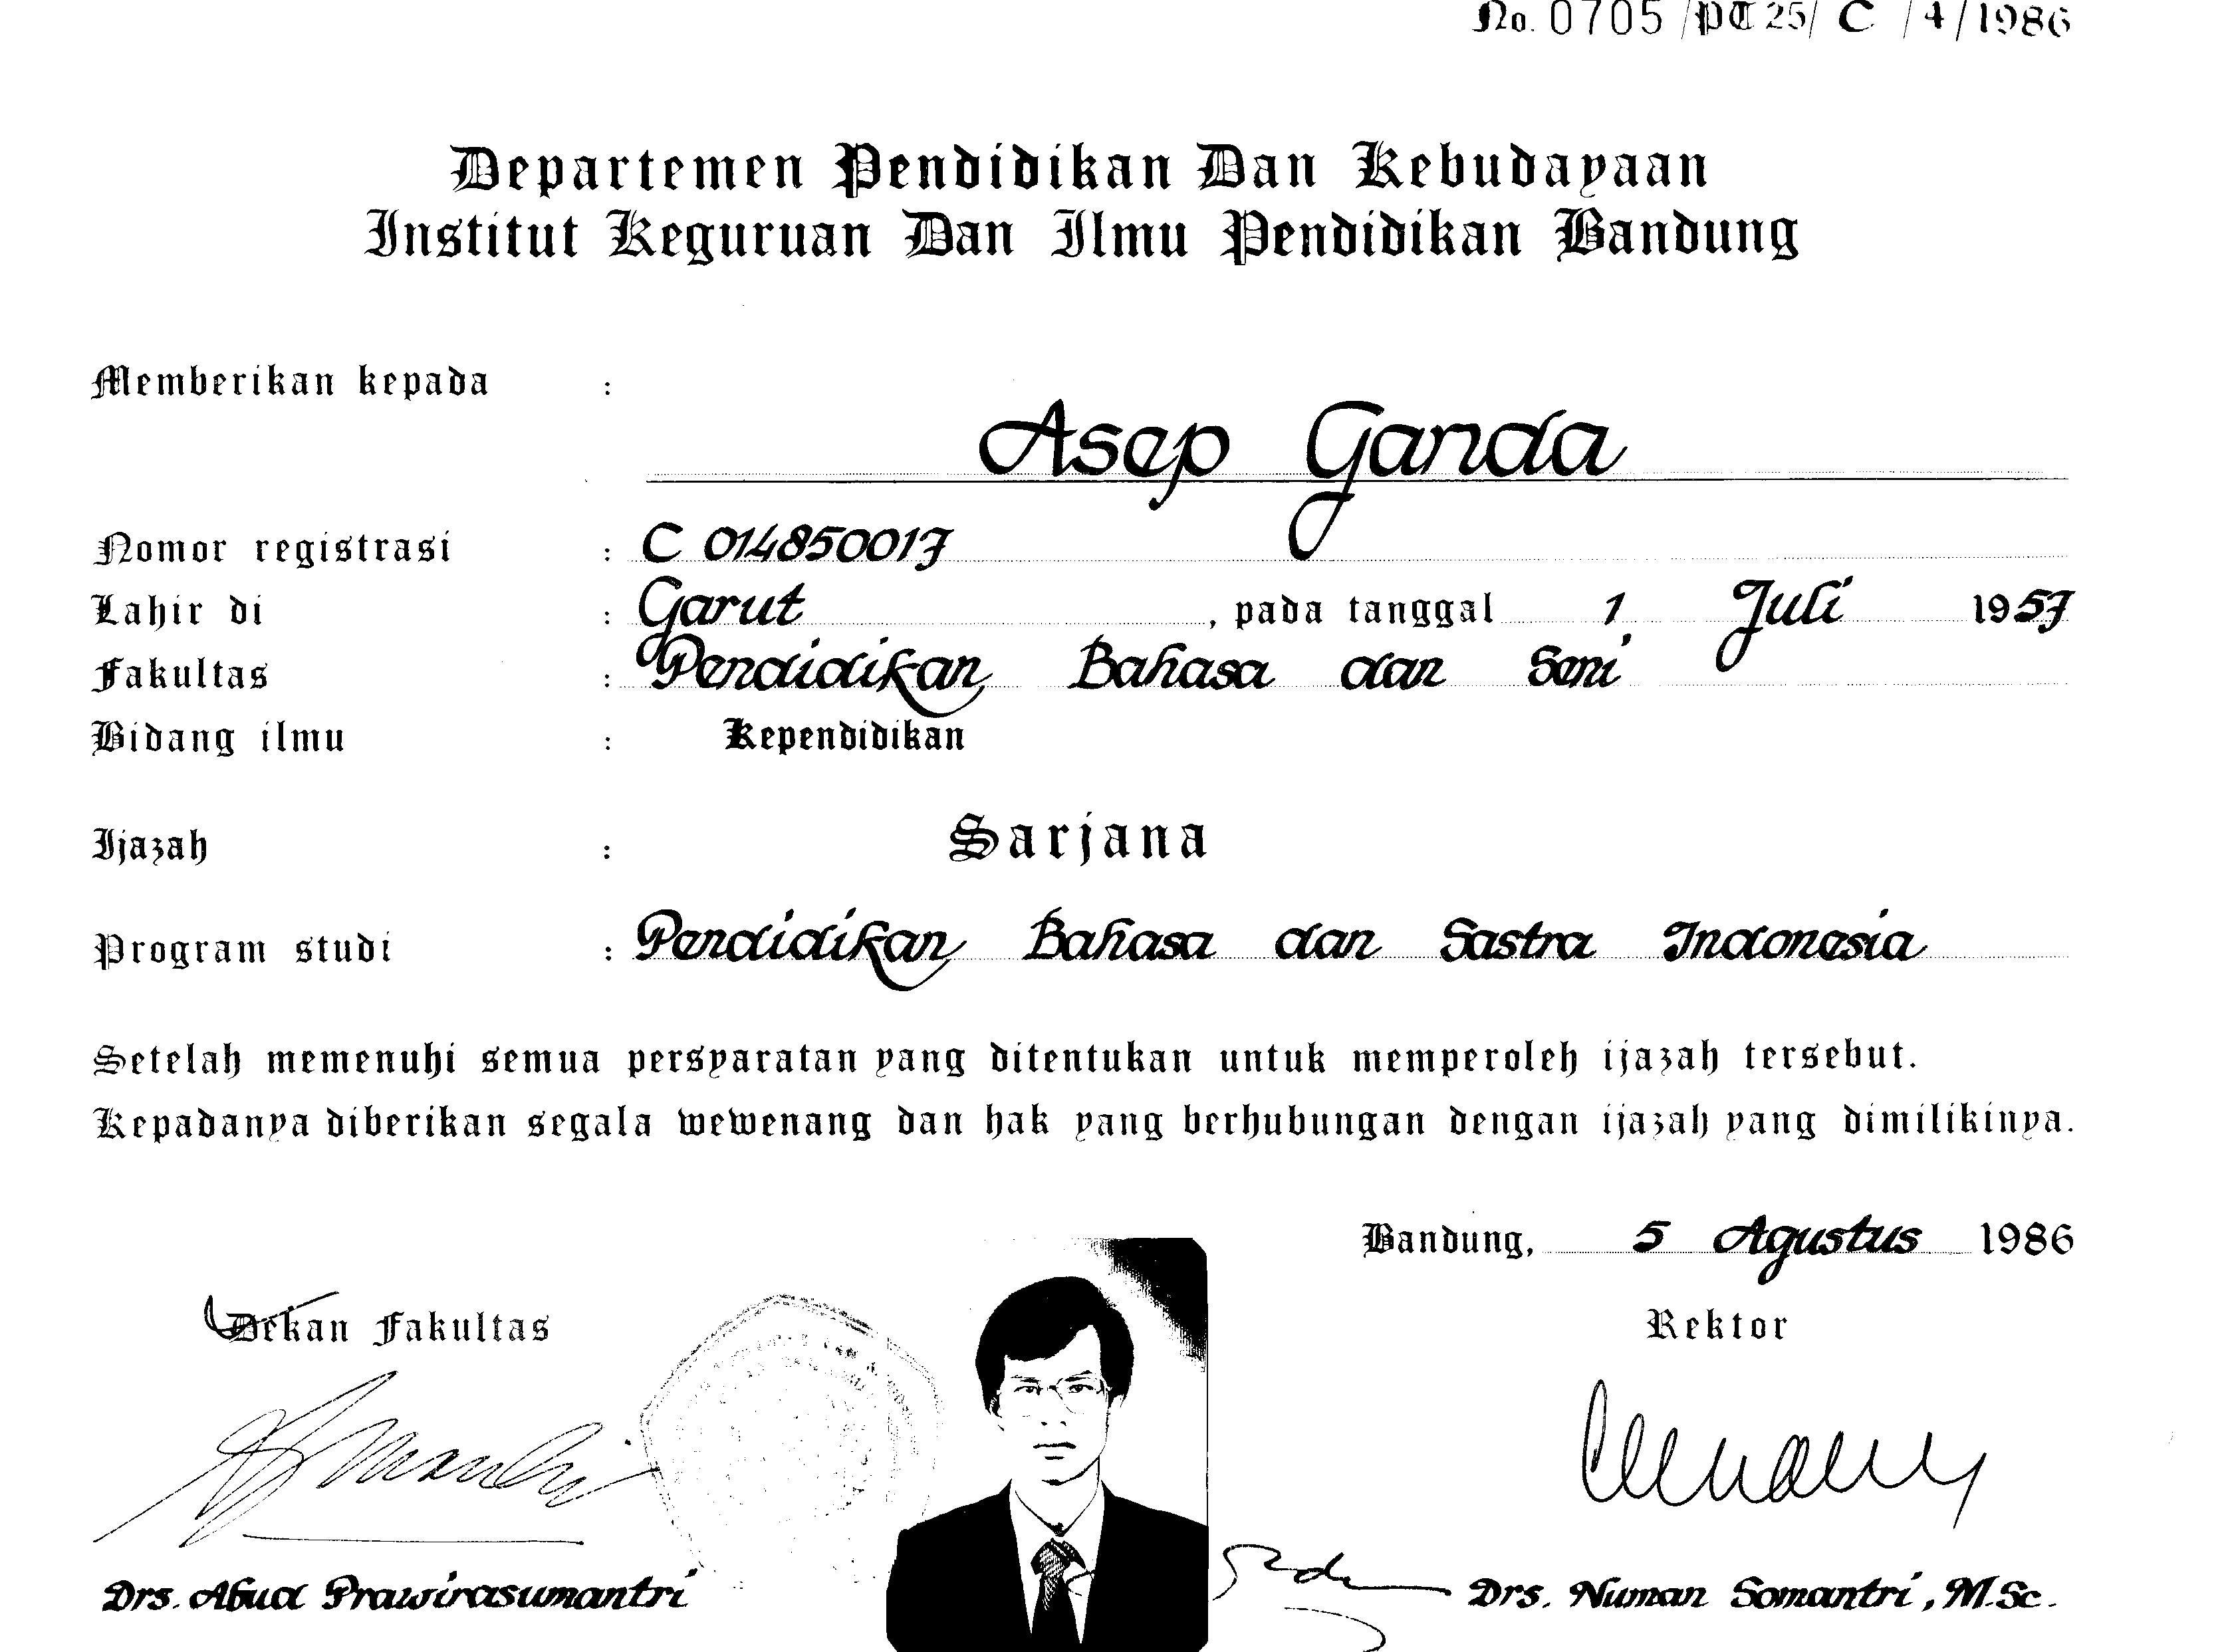 No. 0705 /PT 25/ C /4/1986
Departemen Pendidikan Dan Kebudayaan
Institut Keguruan Dan Ilmu Pendidikan Bandung
Memberikan kepada :
Asep Ganda
Nomor registrasi : C 014850017
Lahir di : Garut , pada tanggal 1 Juli 1957
Fakultas : Pendidikan Bahasa dan Seni
Bidang ilmu : Kependidikan
Ijazah : Sarjana
Program studi : Pendidikan Bahasa dan Sastra Indonesia
Setelah memenuhi semua persyaratan yang ditentukan untuk memperoleh ijazah tersebut.
Kepadanya diberikan segala wewenang dan hak yang berhubungan dengan ijazah yang dimilikinya.
Bandung, 5 Agustus 1986
Dekan Fakultas
Rektor
Drs. Abud Prawirasumantri
Drs. Numan Somantri, M.Sc.